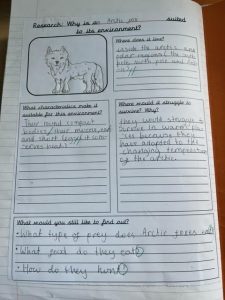 Research: Why is an Arctic fox suited
to its environment?
Where does it live?
inside the arctic and
other regions! the
north pole and
What characteristics make it
suitable for this environment?
Their round compact
bodies, their muzzle, ears
and short legged it
heat.
Where would it struggle to
survive? Why?
they would struggle to
survive in warm pla
ces because they
have adapted to the
changing temperature
of the arctic.
What would you still like to find out?
• What type of prey does Arctic foxes eat
• What food do they eat?
• How do they hunt?